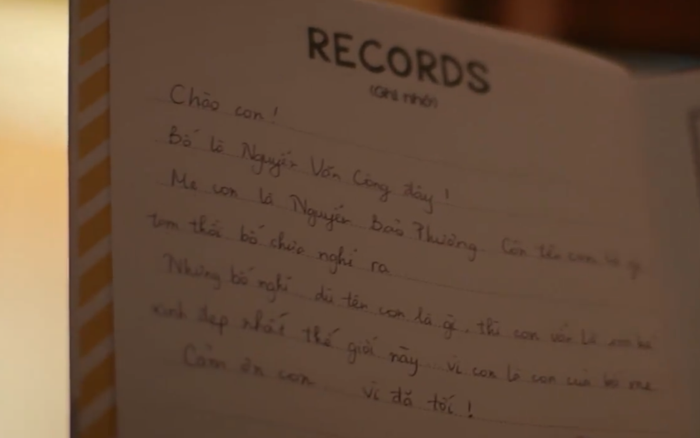 RECORDS
(Ghi nhớ)
Chào con!
Bố là Nguyễn Văn Công đây!
Mẹ con là Nguyễn Bảo Phương. Còn tên con là gì
tạm thời bố chưa nghĩ ra
Nhưng bố nghĩ dù tên con là gì, thì con vẫn là em bé
xinh đẹp nhất thế giới này vì con là con của bố mẹ
Cảm ơn con vì đã tới!